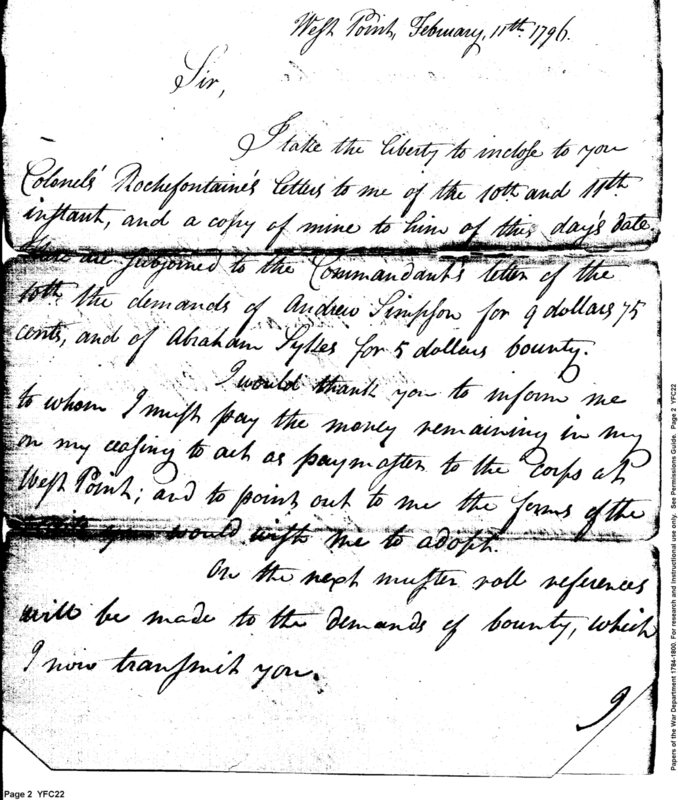 West Point, February, 11th. 1796.
Sir,
I take the liberty to inclose to you
Colonels' Rochefontaine's letters to me of the 10th and 11th.
instant, and a copy of mine to him of this day's date
are subjoined to the Commandant's letter of the
10th. the demands of Andrew Simpson for 9 dollars 75
cents, and of Abraham Sykes for 5 dollars bounty.
I would thank you to inform me
to whom I must pay the money remaining in my
on my ceasing to act as paymaster to the corps at
West Point; and to point out to me the forms of the
you would wish me to adopt.
On the next muster roll references
will be made to the demands of bounty, which
I now transmit you.
I
Page 2 YFC22
Papers of the War Department 1784-1800. For research and instructional use only. See Permissions Guide. Page 2 YFC22